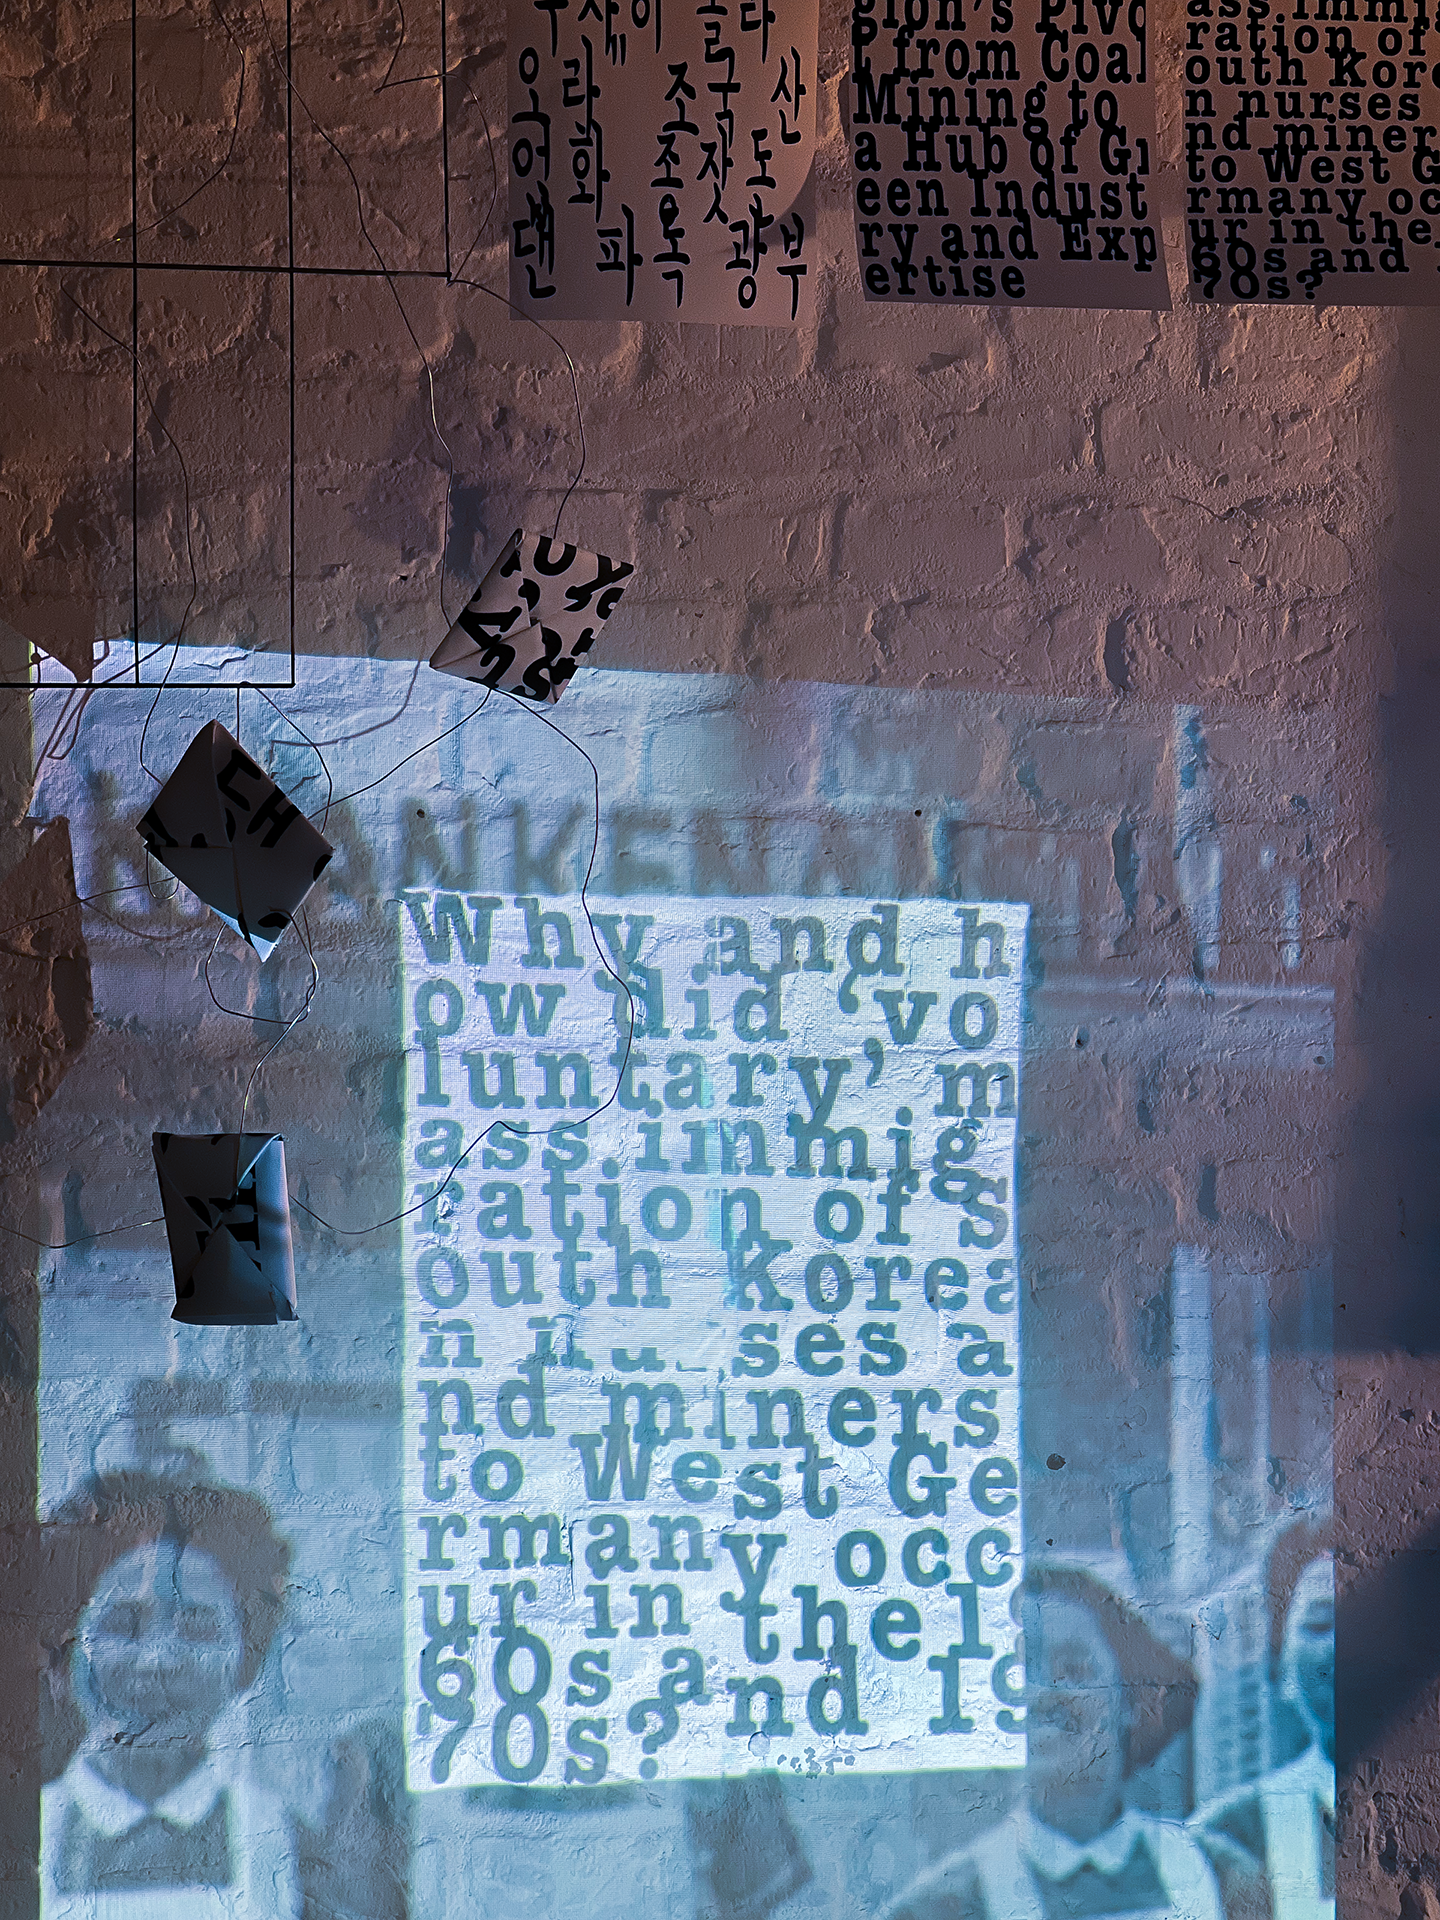 오라 조국 산
어화 조잣도
댄 파독 광부
gion's Pivo
t from Coal
Mining to
a Hub of Gr
een Indust
ry and Exp
ertise
ass immig
ration of
outh Kore
n nurses
nd miner
to West G
rmany oc
ur in the
60s and
70s?
Why and h
ow did 'vo
luntary' m
ass immig
ration of S
outh Korea
n nurses a
nd miners
to West Ge
rmany occ
ur in the 19
60s and 19
70s?